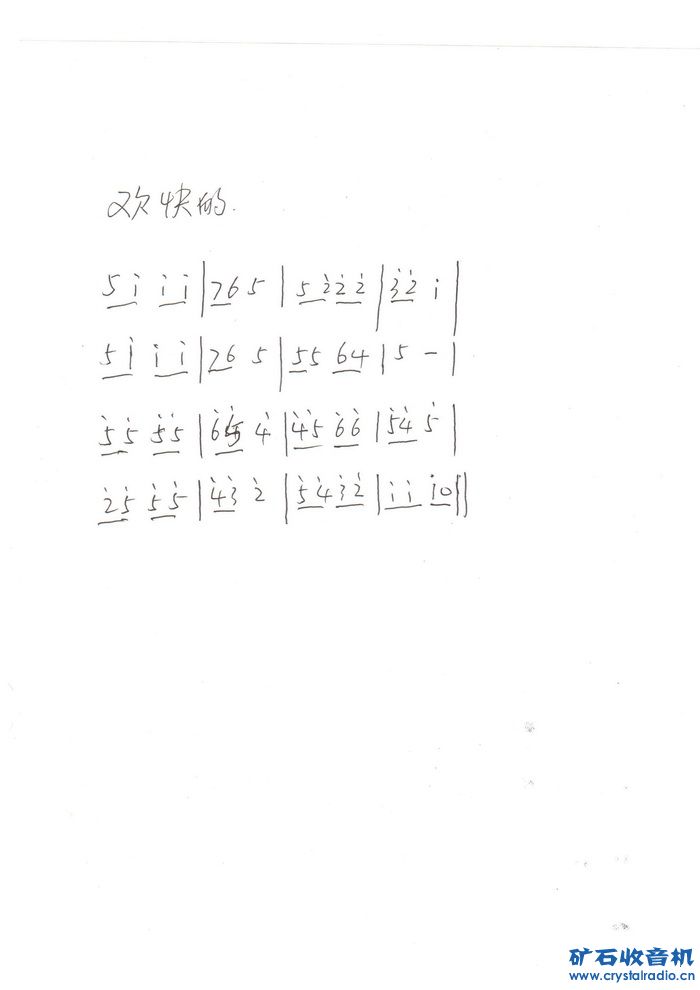 欢快的.
5 i̇ i̇ i̇ | 7 6 5 | 5 2̇ 2̇ 2̇ | 3̇ 2̇ i̇ |
5 i̇ i̇ i̇ | 7 6 5 | 5 5 6 4 | 5 - |
5̇ 5̇ 5̇ 5̇ | 6̇ 5̇ 4̇ | 4̇ 5̇ 6̇ 6̇ | 5̇ 4̇ 5̇ |
2̇ 5̇ 5̇ 5̇ | 4̇ 3̇ 2̇ | 5̇ 4̇ 3̇ 2̇ | i̇ i̇ i̇ 0 ||
矿石收音机
www.crystalradio.cn